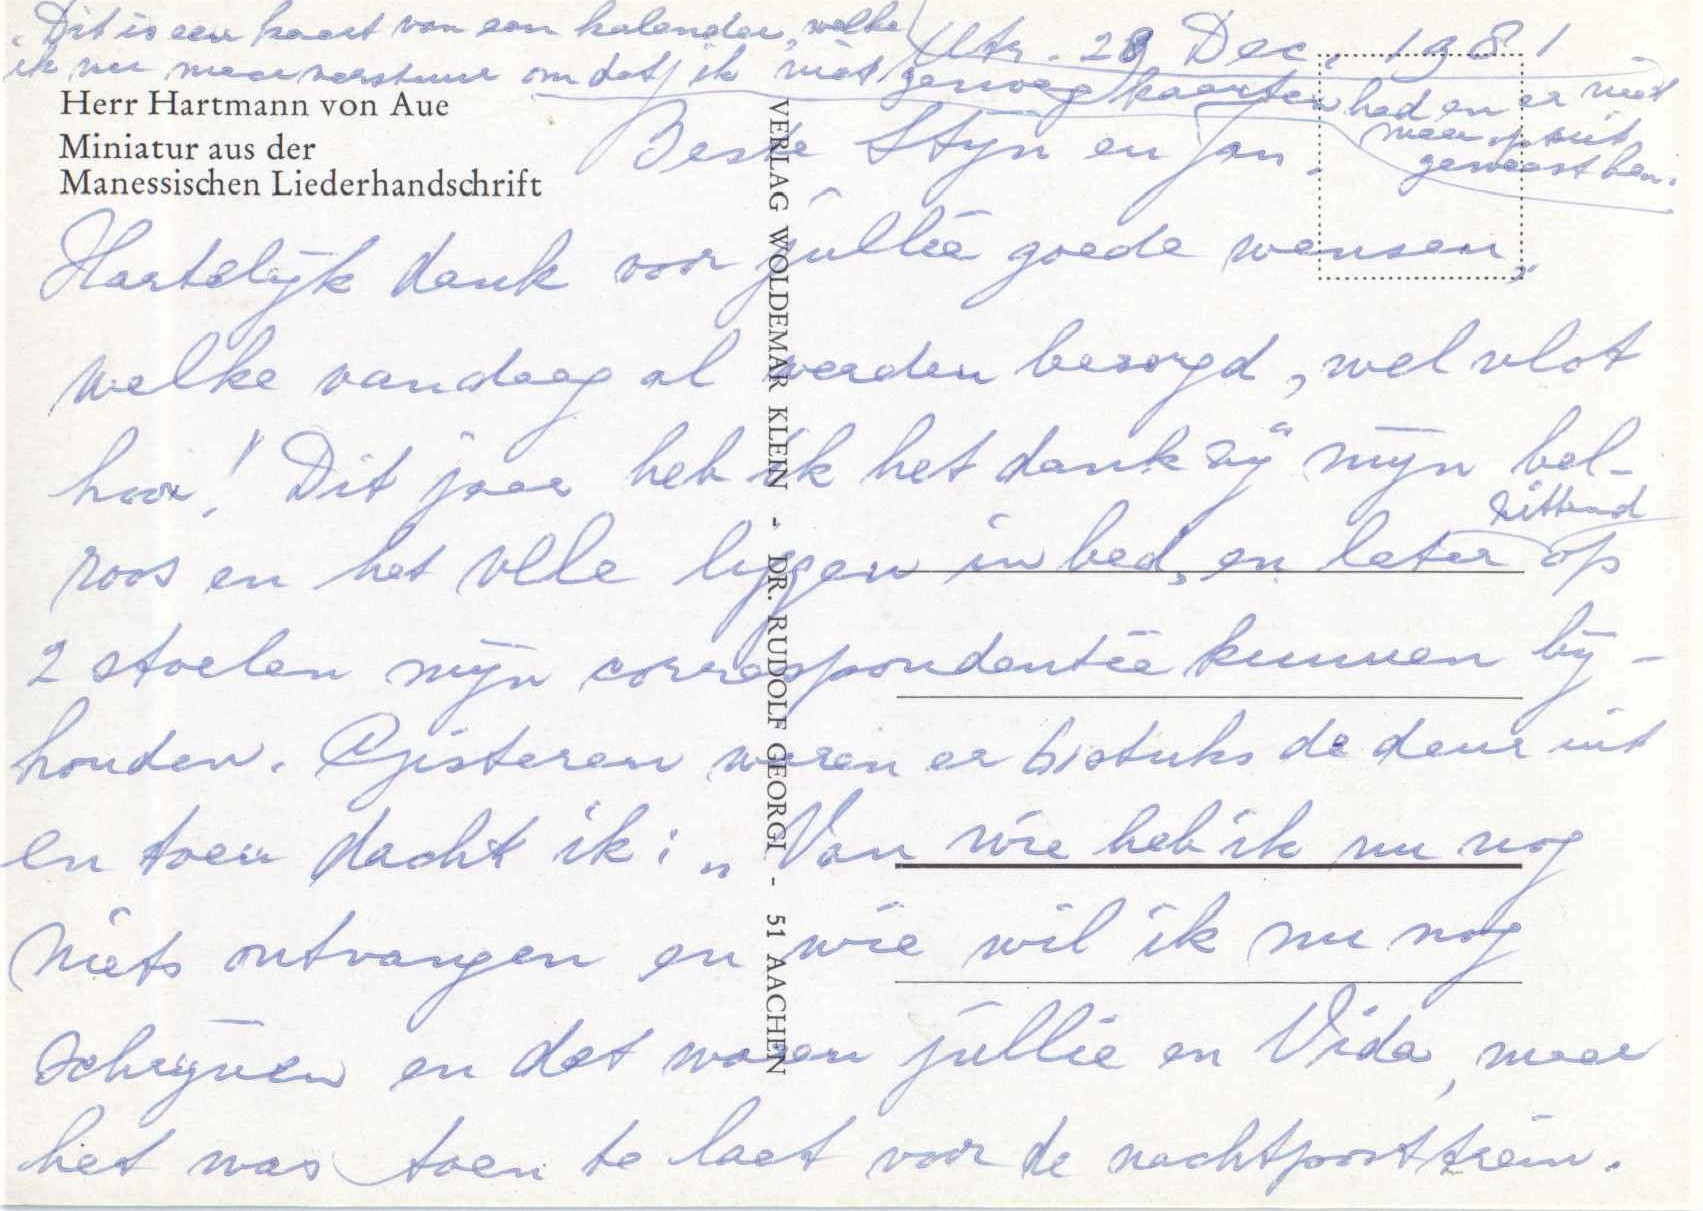 Dit is een kaart van een kalender, welke
ik nu maar verstuur omdat ik niet genoeg kaarten had en er niet
meer op uit
geweest ben.
Utr. 28 Dec. 1981
Herr Hartmann von Aue
Miniatur aus der
Manessischen Liederhandschrift
VERLAG WOLDEMAR KLEIN - DR. RUDOLF GEORGI - 51 AACHEN
Beste Stijn en Jan.
Hartelijk dank voor jullie goede wensen,
welke vandaag al werden bezorgd, wel vlot
hoor! Dit jaar heb ik het dank zij" mijn bel-
roos en het vele liggen in bed, en later zittend op
2 stoelen mijn correspondentie kunnen bij-
houden. Gisteren waren er 61 stuks de deur uit
en toen dacht ik: „Van wie heb ik nu nog
niets ontvangen en wie wil ik nu nog
schrijven en dat waren jullie en Vida, maar
het was toen te laat voor de nachtposttrein.